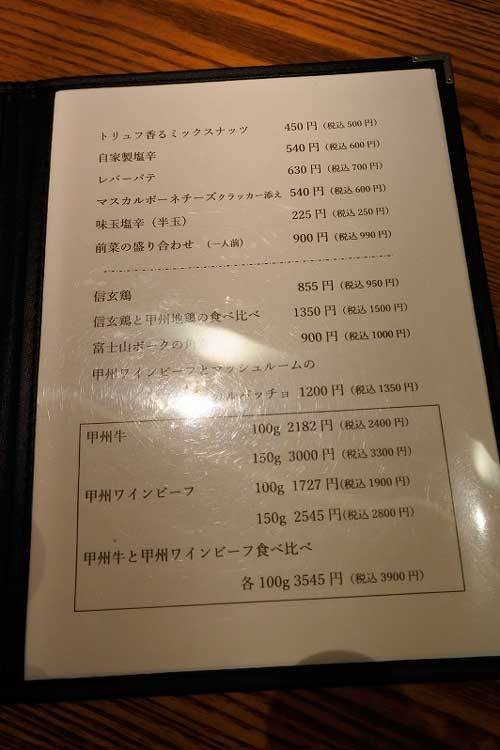 トリュフ香るミックスナッツ 450円（税込500円）
自家製塩辛 540円（税込600円）
レバーパテ 630円（税込700円）
マスカルポーネチーズクラッカー添え 540円（税込600円）
味玉塩辛（半玉） 225円（税込250円）
前菜の盛り合わせ （一人前） 900円（税込990円）
信玄鶏 855円（税込950円）
信玄鶏と甲州地鶏の食べ比べ 1350円（税込1500円）
富士山ポークの 900円（税込1000円）
甲州ワインビーフとマッシュルームの
カルパッチョ 1200円（税込1350円）
甲州牛 100g 2182円（税込2400円）
150g 3000円（税込3300円）
甲州ワインビーフ 100g 1727円（税込1900円）
150g 2545円（税込2800円）
甲州牛と甲州ワインビーフ食べ比べ
各100g 3545円（税込3900円）